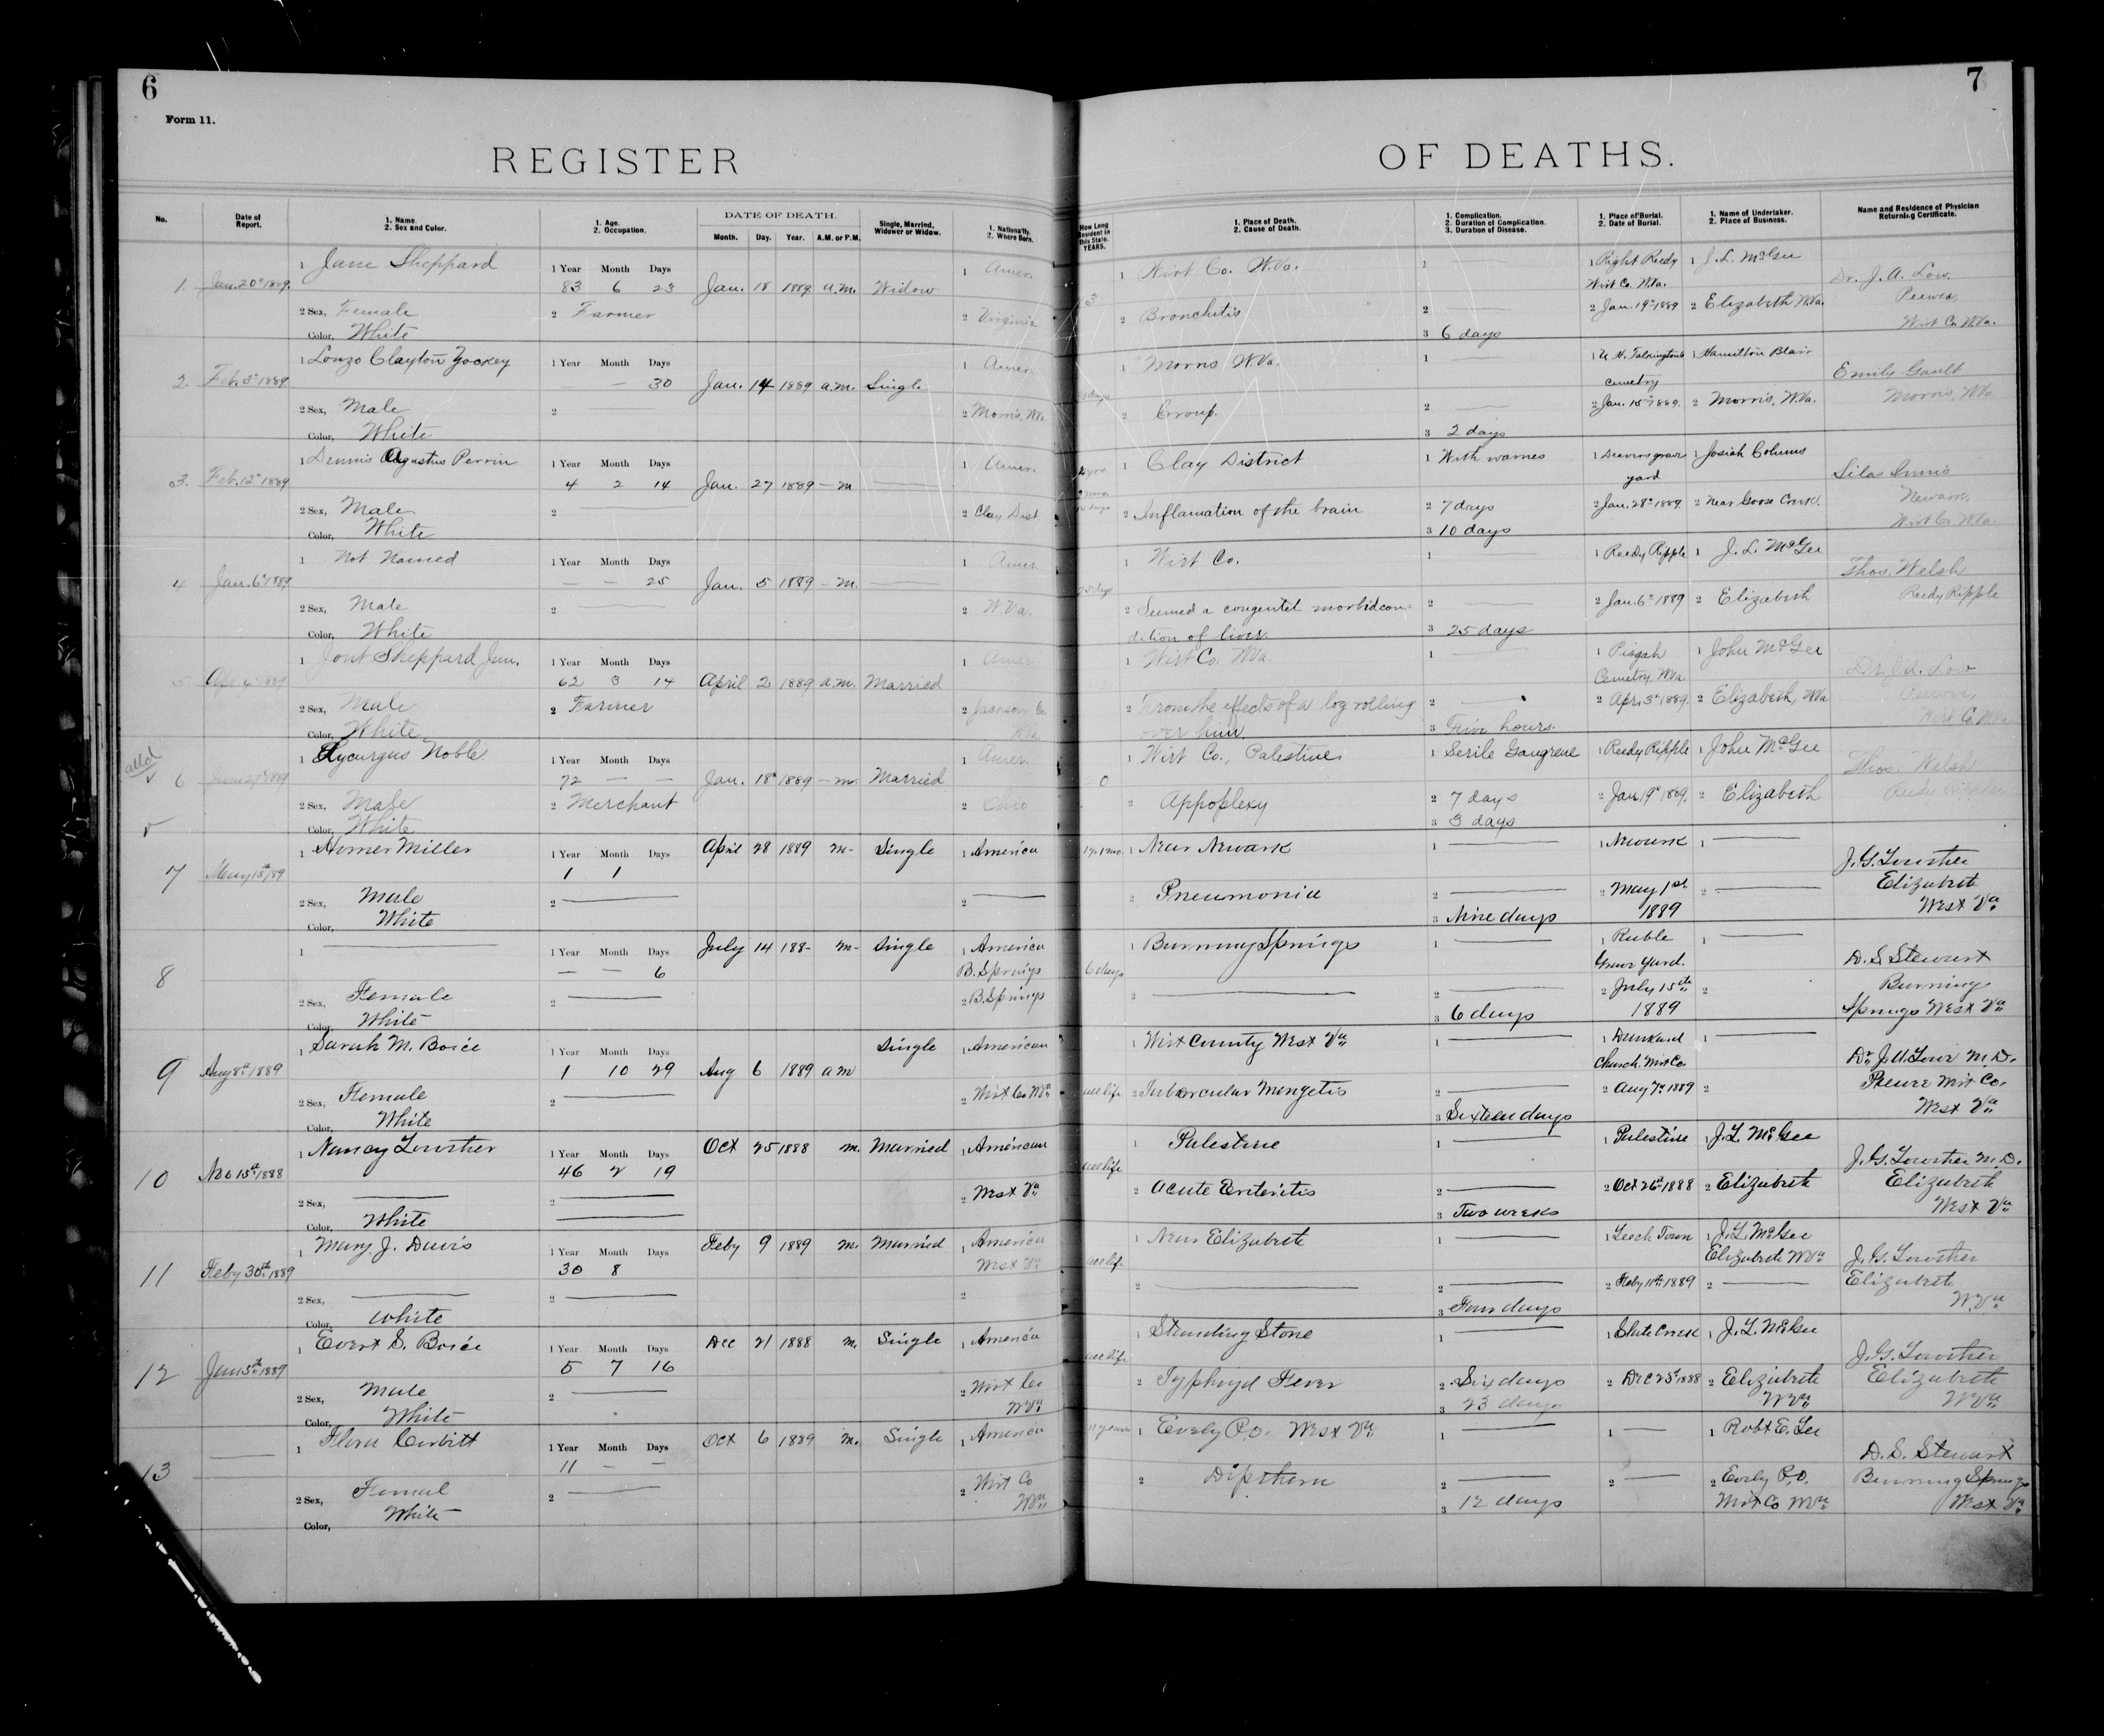 6
Form 11.
REGISTER
No.
Date of Report.
1. Name. 2. Sex and Color.
1. Age. 2. Occupation.
DATE OF DEATH.
Month. Day. Year. A.M. or P.M.
Single, Married, Widower or Widow.
1. Nationality. 2. Where Born.
1. Jan. 20th 1889. 1 Jane Sheppard 1 Year 83 Month 6 Days 23 Jan. 18 1889 a.m. Widow 1 Amer.
2 Sex, Female 2 Farmer 2 Virginia
Color, White
2. Feb. 3d 1889. 1 Lonzo Clayton Yockey 1 Year — Month — Days 30 Jan. 14 1889 a.m. Single 1 Amer.
2 Sex, Male 2 — 2 Morris, W.Va.
Color, White
3. Feb. 12th 1889 1 Dennis Agustus Perrin 1 Year 4 Month 2 Days 14 Jan. 27 1889 — m — 1 Amer.
2 Sex, Male 2 — 2 Clay Dist.
Color, White
4 Jan. 6th 1889 1 Not Named 1 Year — Month — Days 25 Jan. 5 1889 — m. — 1 Amer
2 Sex, Male 2 — 2 W.Va.
Color, White
5 1889 1 Sheppard Jun. 1 Year 62 Month 3 Days 14 April 2 1889 a.m. Married 1 Amer.
2 Sex, Male 2 Farmer 2 Jackson Co
Color, White
6 1889 Lycurgus Noble 1 Year 72 Month — Days — Jan. 18th 1889 — m. Married 1 Amer.
2 Sex, Male 2 Merchant 2 Ohio
Color, White
7 May 15th/89 1 Homer Miller 1 Year 1 Month 1 Days April 28 1889 m- Single 1 America
2 Sex, Male 2 — 2 —
Color, White
8 1 — 1 Year — Month — Days 6 July 14 188- m- Single 1 America
B. Springs
2 Sex, Female 2 — 2 B. Springs
Color, White
9 Aug 8th 1889 1 Sarah M. Boice 1 Year 1 Month 10 Days 29 Aug 6 1889 a m Single 1 American
2 Sex, Female 2 — 2 Wirt Co WVa
Color, White
10 Nov 15th 1888 1 Nancy Lowther 1 Year 46 Month 2 Days 19 Oct 25 1888 m. Married 1 American
2 Sex, — 2 — 2 West Va
Color, White
11 Feby 30th 1889 1 Mary J. Davis 1 Year 30 Month 8 Days Feby 9 1889 m. Married 1 America
West Va
2 Sex, — 2 — 2
Color, White
12 Jan 5th 1889 1 Evert S. Boice 1 Year 5 Month 7 Days 16 Dec 21 1888 m. Single 1 America
2 Sex, Male 2 — 2 Wirt Co
Color, White WVa
13 — 1 Flora Corbitt 1 Year 11 Month — Days — Oct 6 1889 m. Single 1 America
2 Sex, Femal 2 — 2 Wirt Co
Color, White WVa
7
OF DEATHS.
How Long Resident in this State. YEARS.
1. Place of Death. 2. Cause of Death.
1. Complication. 2. Duration of Complication. 3. Duration of Disease.
1. Place of Burial. 2. Date of Burial.
1. Name of Undertaker. 2. Place of Business.
Name and Residence of Physician Returning Certificate.
1 Wirt Co. W.Va. 1 — 1 Right Reedy 1 J. L. McGee
Wirt Co. W.Va. Dr. J. A. Low.
3 2 Bronchitis 2 — 2 Jan. 19th 1889 2 Elizabeth, W.Va. Peewee,
3 6 days Wirt Co. W.Va.
1 Morris W.Va. 1 — 1 1 Hamilton Blair
cemetry Emily Gault
days 2 Croup. 2 — 2 Jan. 15th 1889. 2 Morris, W.Va. Morris, W.Va.
3 2 days
4 yrs 1 Clay District 1 With warmes 1 grave 1 Josiah Colums
yard Silas Innis
days 2 Inflamation of the brain 2 7 days 2 Jan. 28th 1889 2 Near Goose Creek. Newark
3 10 days Wirt Co. W.Va
1 Wirt Co. 1 — 1 Reedy Ripple 1 J. L. McGee
Thos. Welsh
25 days 2 Seemed a congentel morbid con- 2 2 Jan. 6th 1889 2 Elizabeth Reedy Ripple
dition of liver. 3 25 days
1 Wirt Co. W.Va. 1 — 1 Pisgah 1 John McGee
Cemetry, W.Va. Dr. J. A. Low
2 From the effects of a log rolling 2 — 2 Apr. 3d 1889. 2 Elizabeth, W.Va Peewee,
over him. 3 Five hours. Wirt Co. W.Va.
1 Wirt Co., Palestine 1 Serile Gangrene 1 Reedy Ripple 1 John McGee
0 Thos. Welsh
2 Appoplexy 2 7 days 2 Jan. 19th 1889. 2 Elizabeth Reedy Ripple
3 3 days
1 yr 1 mo. 1 Near Newark 1 — 1 Newark 1 —
J. G. Lowther
2 Pneumonia 2 — 2 May 1st 2 — Elizabeth
3 Nine days 1889 West Va
1 Burning Springs 1 — 1 Ruble 1 —
6 days Grave Yard. D. S. Stewart
2 — 2 — 2 July 15th 2 Burning
3 6 days 1889 Springs West Va
1 Wirt County West Va 1 — 1 Dunkard 1 —
Church. Wirt Co. Dr. J. A. Low M.D.
all life 2 Tubercular Mengetis 2 — 2 Aug 7th 1889 2 Peewe Wirt Co.
3 Sixteen days West Va
1 Palestine 1 — 1 Palestine 1 J. L. McGee
all life J. G. Lowther M.D.
2 Acute Enteritis 2 — 2 Oct 26th 1888 2 Elizabeth Elizabeth
3 Two weeks West Va
1 Near Elizabeth 1 — 1 Leech Town 1 J. L. McGee
all life Elizabeth WVa J. G. Lowther
2 — 2 — 2 Feby 11th 1889 2 — Elizabeth
3 Four days W.Va
1 Standing Stone 1 — 1 Slate Creek 1 J. L. McGee
all life J. G. Lowther
2 Typhoyd Fever 2 Six days 2 Dec 23d 1888 2 Elizabeth Elizabeth
3 23 days WVa WVa
11 years 1 Evely P.O. West Va 1 — 1 — 1 Robt E. Lee
D. S. Stewart
2 Dipthera 2 — 2 — 2 Evely P.O. Burning Springs
3 12 days Wirt Co WVa West Va